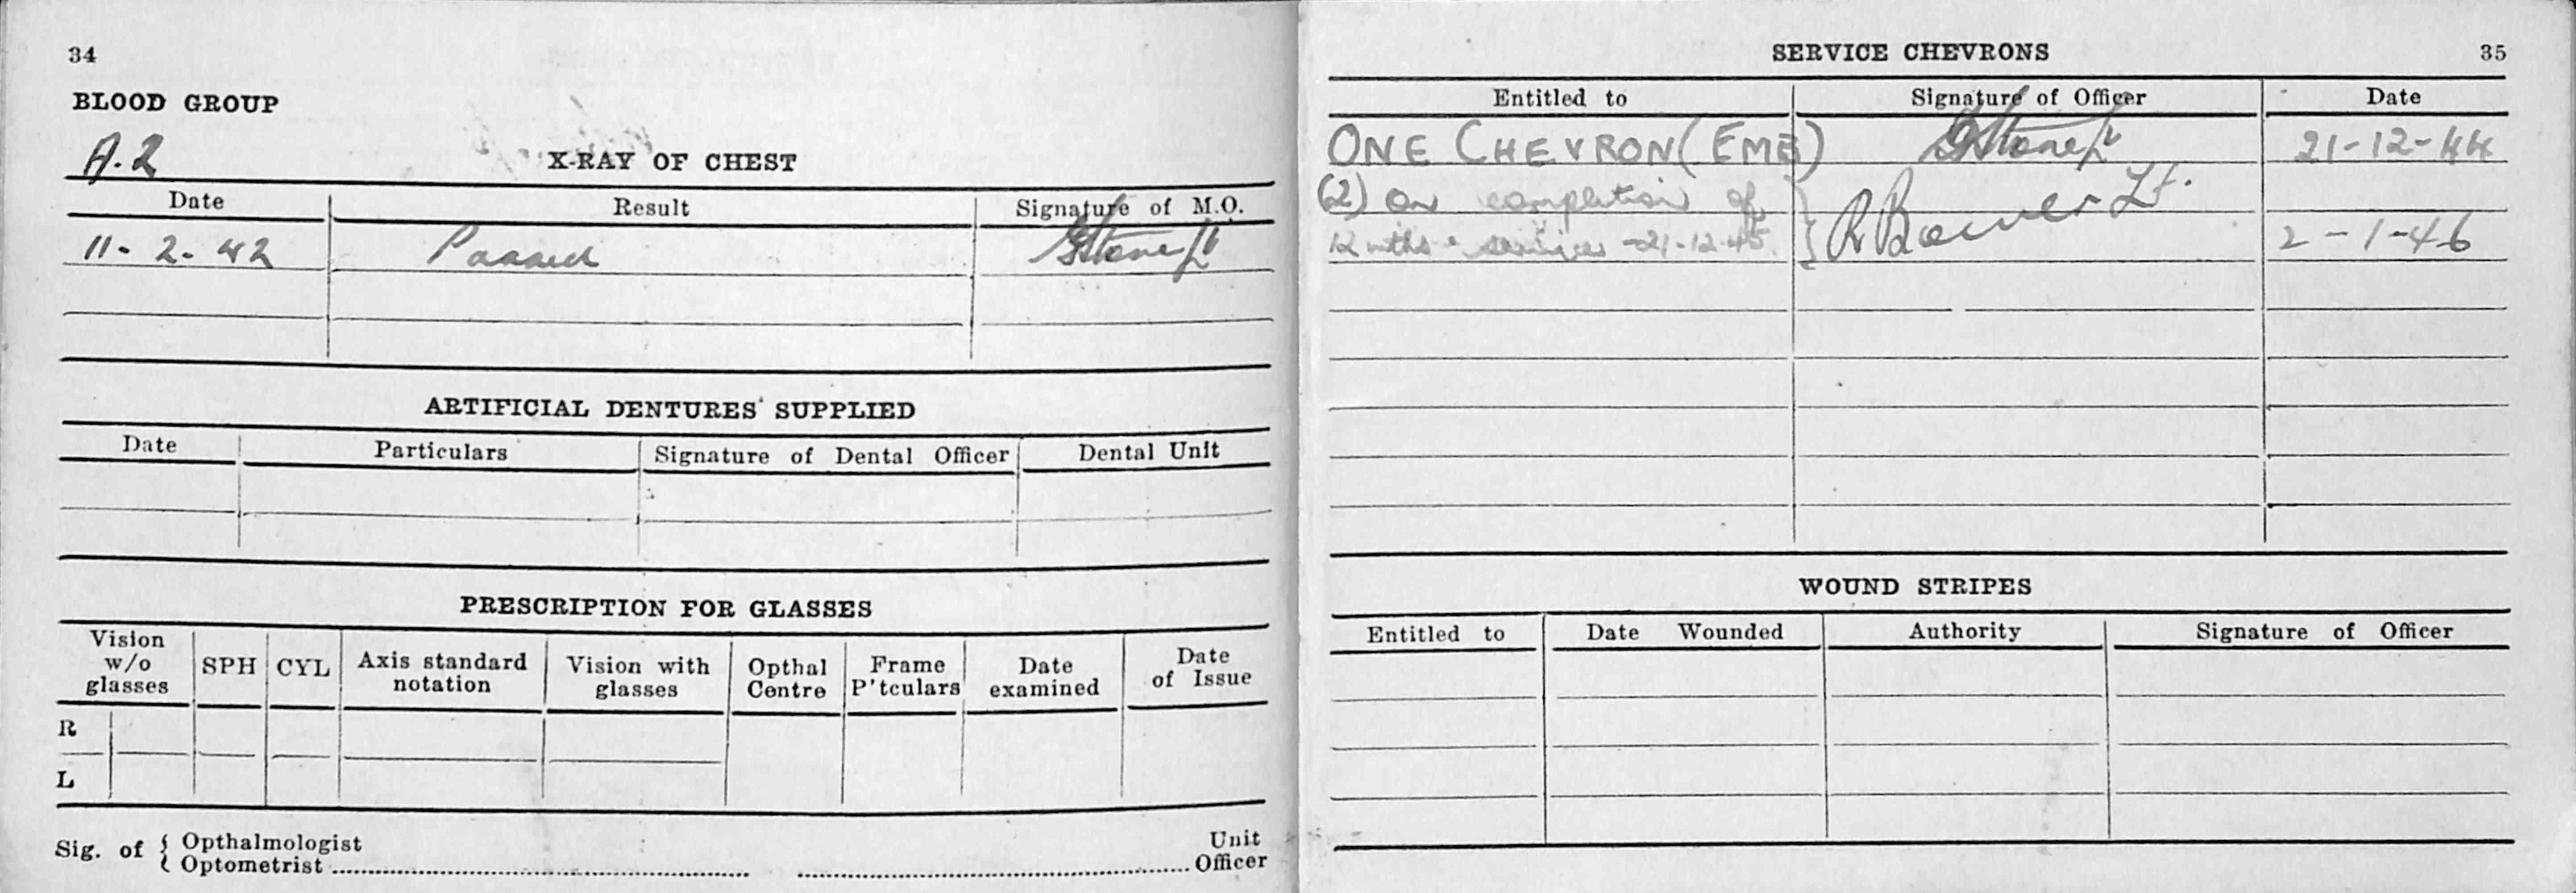 34
BLOOD GROUP
A.2
X-RAY OF CHEST
Date Result Signature of M.O.
11-2-42 Passed GStone Lt
ARTIFICIAL DENTURES SUPPLIED
Date Particulars Signature of Dental Officer Dental Unit
PRESCRIPTION FOR GLASSES
Vision w/o glasses SPH CYL Axis standard notation Vision with glasses Opthal Centre Frame P'tculars Date examined Date of Issue
R
L
Sig. of { Opthalmologist Unit
Optometrist Officer
SERVICE CHEVRONS 35
Entitled to Signature of Officer Date
ONE CHEVRON (EME) GStone Lt 21-12-44
(2) On completion of R Bower Lt.
12 mths service -21-12-45. 2-1-46
WOUND STRIPES
Entitled to Date Wounded Authority Signature of Officer